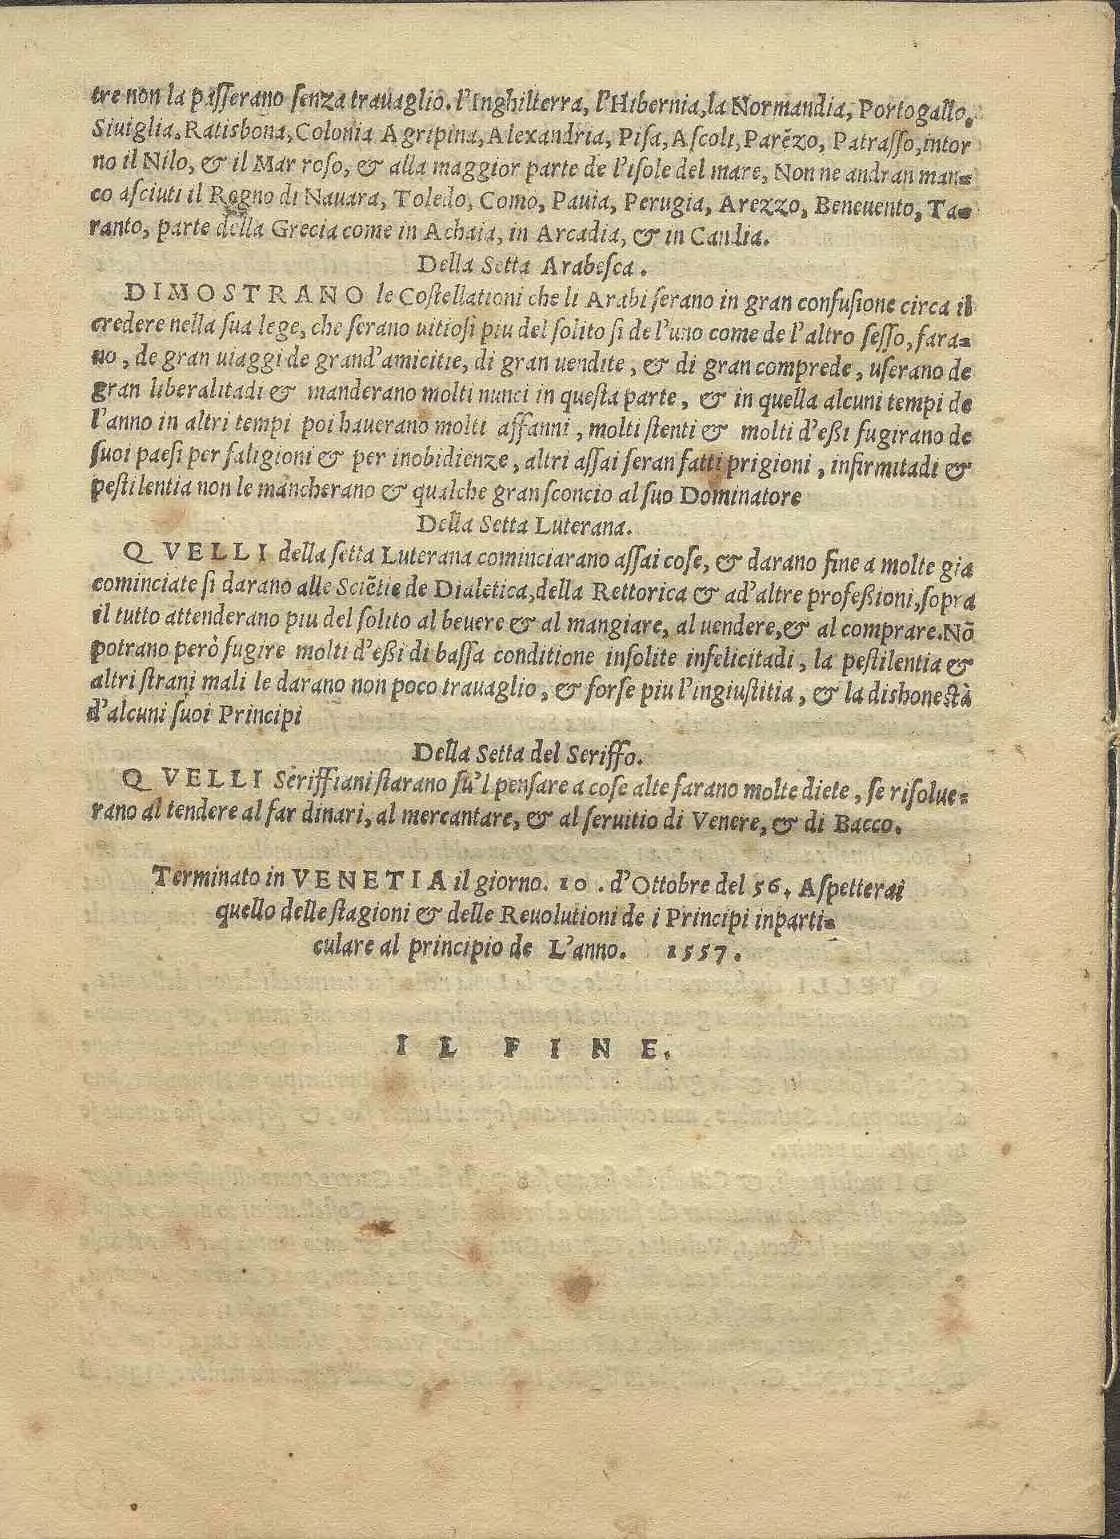 tre non la passerano senza trauaglio. l'Inghilterra, l'Hibernia, la Normandia, Portogallo,
Siuiglia, Ratisbona, Colonia Agripina, Alexandria, Pisa, Ascoli, Parēzo, Patrasso, intor
no il Nilo, & il Mar roso, & alla maggior parte de l'isole del mare, Non ne andran man=
co asciuti il Regno di Nauara, Toledo, Como, Pauia, Perugia, Arezzo, Beneuento, Ta=
ranto, parte della Grecia come in Achaia, in Arcadia, & in Candia.
Della Setta Arabesca.
DIMOSTRANO le Costellationi che li Arabi serano in gran confusione circa il
credere nella sua lege, che serano uitiosi piu del solito si de l'uno come de l'altro sesso, fara=
no, de gran uiaggi de grand'amicitie, di gran uendite, & di gran comprede, userano de
gran liberalitadi & manderano molti nunci in questa parte, & in quella alcuni tempi de
l'anno in altri tempi poi hauerano molti affanni, molti stenti & molti d'eßi fugirano de
suoi paesi per faligioni & per inobidienze, altri assai seran fatti prigioni, infirmitadi &
pestilentia non le mancherano & qualche gran sconcio al suo Dominatore
Della Setta Luterana.
QVELLI della setta Luterana cominciarano assai cose, & darano fine a molte gia
cominciate si darano alle Sciētie de Dialetica, della Rettorica & ad'altre profeßioni, sopra
il tutto attenderano piu del solito al beuere & al mangiare, al uendere, & al comprare. Nō
potrano però fugire molti d'eßi di bassa conditione insolite infelicitadi, la pestilentia &
altri strani mali le darano non poco trauaglio, & forse piu l'ingiustitia, & la dishonestà
d'alcuni suoi Principi
Della Setta del Seriffo.
QVELLI Seriffiani starano su'l pensare a cose alte farano molte diete, se risolue=
rano al tendere al far dinari, al mercantare, & al seruitio di Venere, & di Bacco.
Terminato in VENETIA il giorno. 10. d'Ottobre del 56. Aspetterai
quello delle stagioni & delle Reuolutioni de i Principi inparti=
culare al principio de L'anno. 1557.
IL FINE.